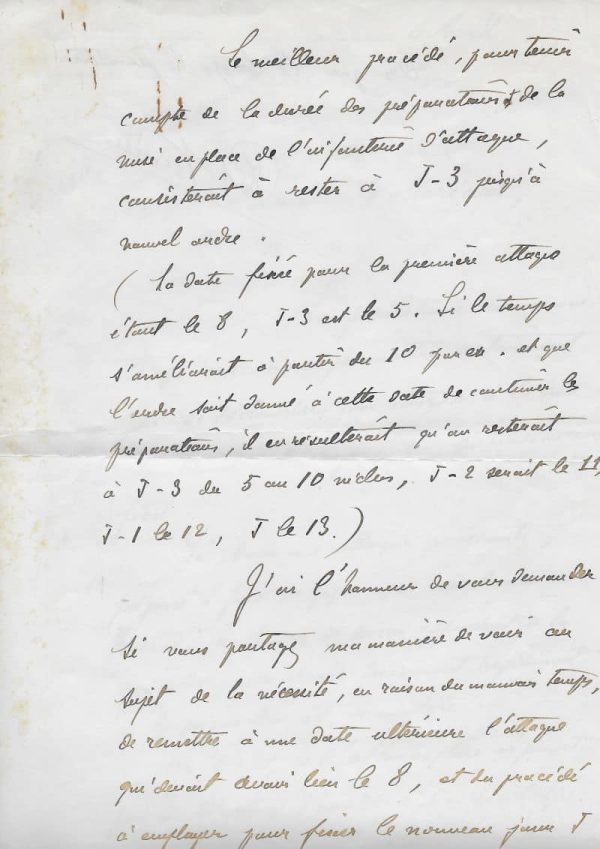 Le meilleur procédé, pour tenir
compte de la durée des préparations & de la
mise en place de l'infanterie d'attaque,
consisterait à rester à J-3 jusqu'à
nouvel ordre.
(La date fixée pour la première attaque
étant le 8, J-3 est le 5. Si le temps
s'améliorait à partir du 10 par ex. et que
l'ordre soit donné à cette date de continuer les
préparations, il en résulterait qu'on resterait
à J-3 du 5 au 10 inclus, J-2 serait le 11,
J-1 le 12, J le 13.)
J'ai l'honneur de vous demander
si vous partagez ma manière de voir au
sujet de la nécessité, en raison du mauvais temps,
de remettre à une date ultérieure l'attaque
qui devait avoir lieu le 8, et du procédé
à employer pour fixer le nouveau jour J